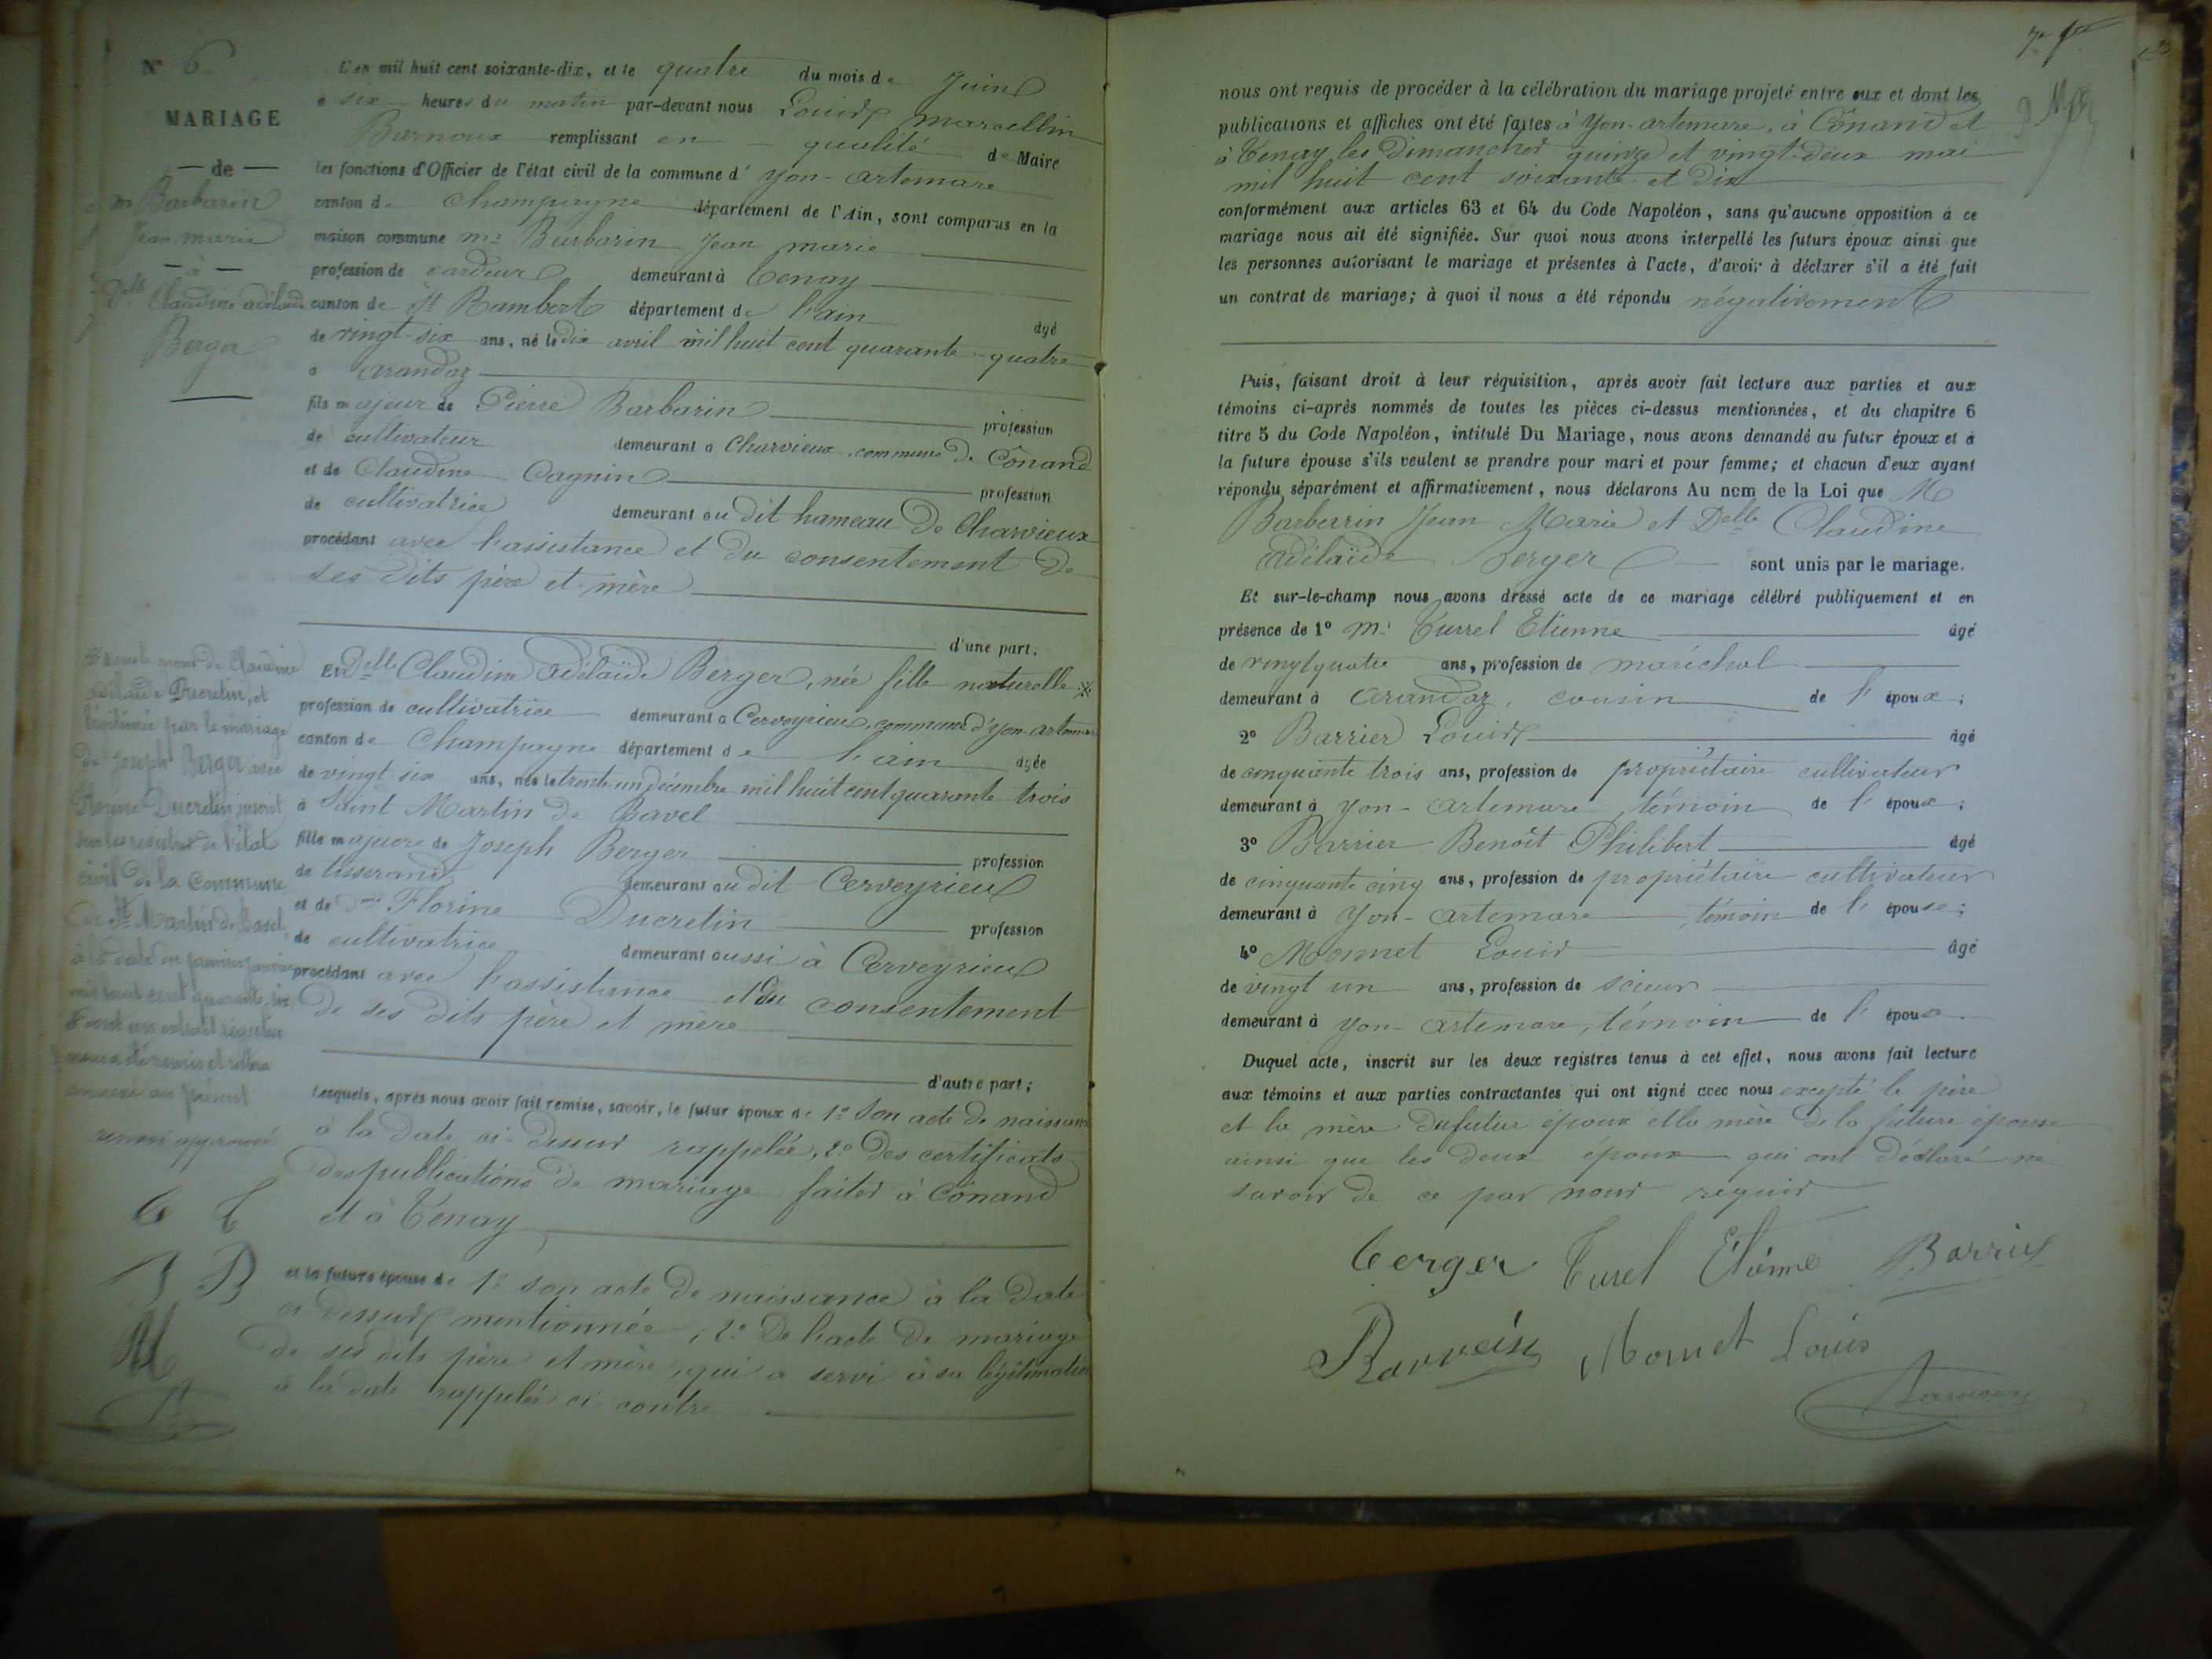 N° 6
MARIAGE
— de —
Mr Barbarin
Jean marie
— à —
Delle Claudine adélaïde
Berger
L'an mil huit cent soixante-dix, et le quatre du mois de Juin
à six heures du matin par-devant nous Louis marcellin
remplissant en qualité de Maire
les fonctions d'Officier de l'état civil de la commune d' yon-artemare
canton de Champagne département de l'Ain, sont comparus en la
maison commune mr Barbarin Jean marie
profession de cardeur demeurant à Tenay
canton de St Rambert département de l'ain âgé
de vingt-six ans, né le dix avril mil huit cent quarante-quatre
à arandaz
fils majeur de Pierre Barbarin profession
de cultivateur demeurant à Charvieux, commune de Cônand
et de Claudine Cagnin profession
de cultivatrice demeurant au dit hameau de Charvieux
procédant avec l'assistance et du consentement de
ses dits père et mère
d'une part;
Et Delle Claudine adélaïde Berger, née fille naturelle ※
profession de cultivatrice demeurant à Cerveyrieu, commune d'yon-artemare
canton de Champagne département de l'ain âgée
de vingt six ans, née le trente-un décembre mil huit cent quarante trois
à Saint Martin de Bavel
fille majeure de Joseph Berger profession
de tisserand demeurant au dit Cerveyrieu
et de dme Florine Ducretin profession
de cultivatrice demeurant aussi à Cerveyrieu
procédant avec l'assistance et du consentement
de ses dits père et mère
d'autre part;
※ sous le nom de Claudine
adélaïde Ducretin, et
légitimée par le mariage
de Joseph Berger avec
Florine Ducretin, inscrit
sur les registres de l'état
civil de la Commune
de St Martin de Bavel,
à la date du premier janvier
mil huit cent quarante-six
annexé au présent
renvoi approuvé
Lesquels, après nous avoir fait remise, savoir, le futur époux de 1° Son acte de naissance
à la date ci-dessus rappelée, 2° des certificats
des publications de mariage faites à Cônand
et à Tenay
et la future épouse de 1° son acte de naissance à la date
ci dessus mentionnée, 2° De l'acte de mariage
de ses dits père et mère, qui a servi à sa légitimation
à la date rappelée ci contre
nous ont requis de procéder à la célébration du mariage projeté entre eux et dont les
publications et affiches ont été faites à Yon-artemare, à Cônand et
à Tenay les Dimanches quinze et vingt-deux mai
mil huit cent soixante et dix
conformément aux articles 63 et 64 du Code Napoléon, sans qu'aucune opposition à ce
mariage nous ait été signifiée. Sur quoi nous avons interpellé les futurs époux ainsi que
les personnes autorisant le mariage et présentes à l'acte, d'avoir à déclarer s'il a été fait
un contrat de mariage; à quoi il nous a été répondu négativement
Puis, faisant droit à leur réquisition, après avoir fait lecture aux parties et aux
témoins ci-après nommés de toutes les pièces ci-dessus mentionnées, et du chapitre 6
titre 5 du Code Napoléon, intitulé Du Mariage, nous avons demandé au futur époux et à
la future épouse s'ils veulent se prendre pour mari et pour femme; et chacun d'eux ayant
répondu séparément et affirmativement, nous déclarons Au nom de la Loi que M
Barbarin Jean Marie et Delle Claudine
adélaïde Berger sont unis par le mariage.
Et sur-le-champ nous avons dressé acte de ce mariage célébré publiquement et en
présence de 1° Mr Turrel Etienne âgé
de vingt quatre ans, profession de maréchal
demeurant à arandaz, cousin de l'époux;
2° Barrier Louis âgé
de cinquante trois ans, profession de propriétaire cultivateur
demeurant à yon-artemare, témoin de l'époux;
3° Barrier Benoît Philibert âgé
de cinquante cinq ans, profession de propriétaire cultivateur
demeurant à Yon-artemare, témoin de l'épouse;
4° Monnet Louis âgé
de vingt un ans, profession de scieur
demeurant à yon-artemare, témoin de l'épouse.
Duquel acte, inscrit sur les deux registres tenus à cet effet, nous avons fait lecture
aux témoins et aux parties contractantes qui ont signé avec nous excepté le père
et la mère du futur époux et la mère de la future épouse
ainsi que les deux époux qui ont déclaré ne
savoir de ce par nous requis
Berger Turel Étienne Barrier
Monnet Louis